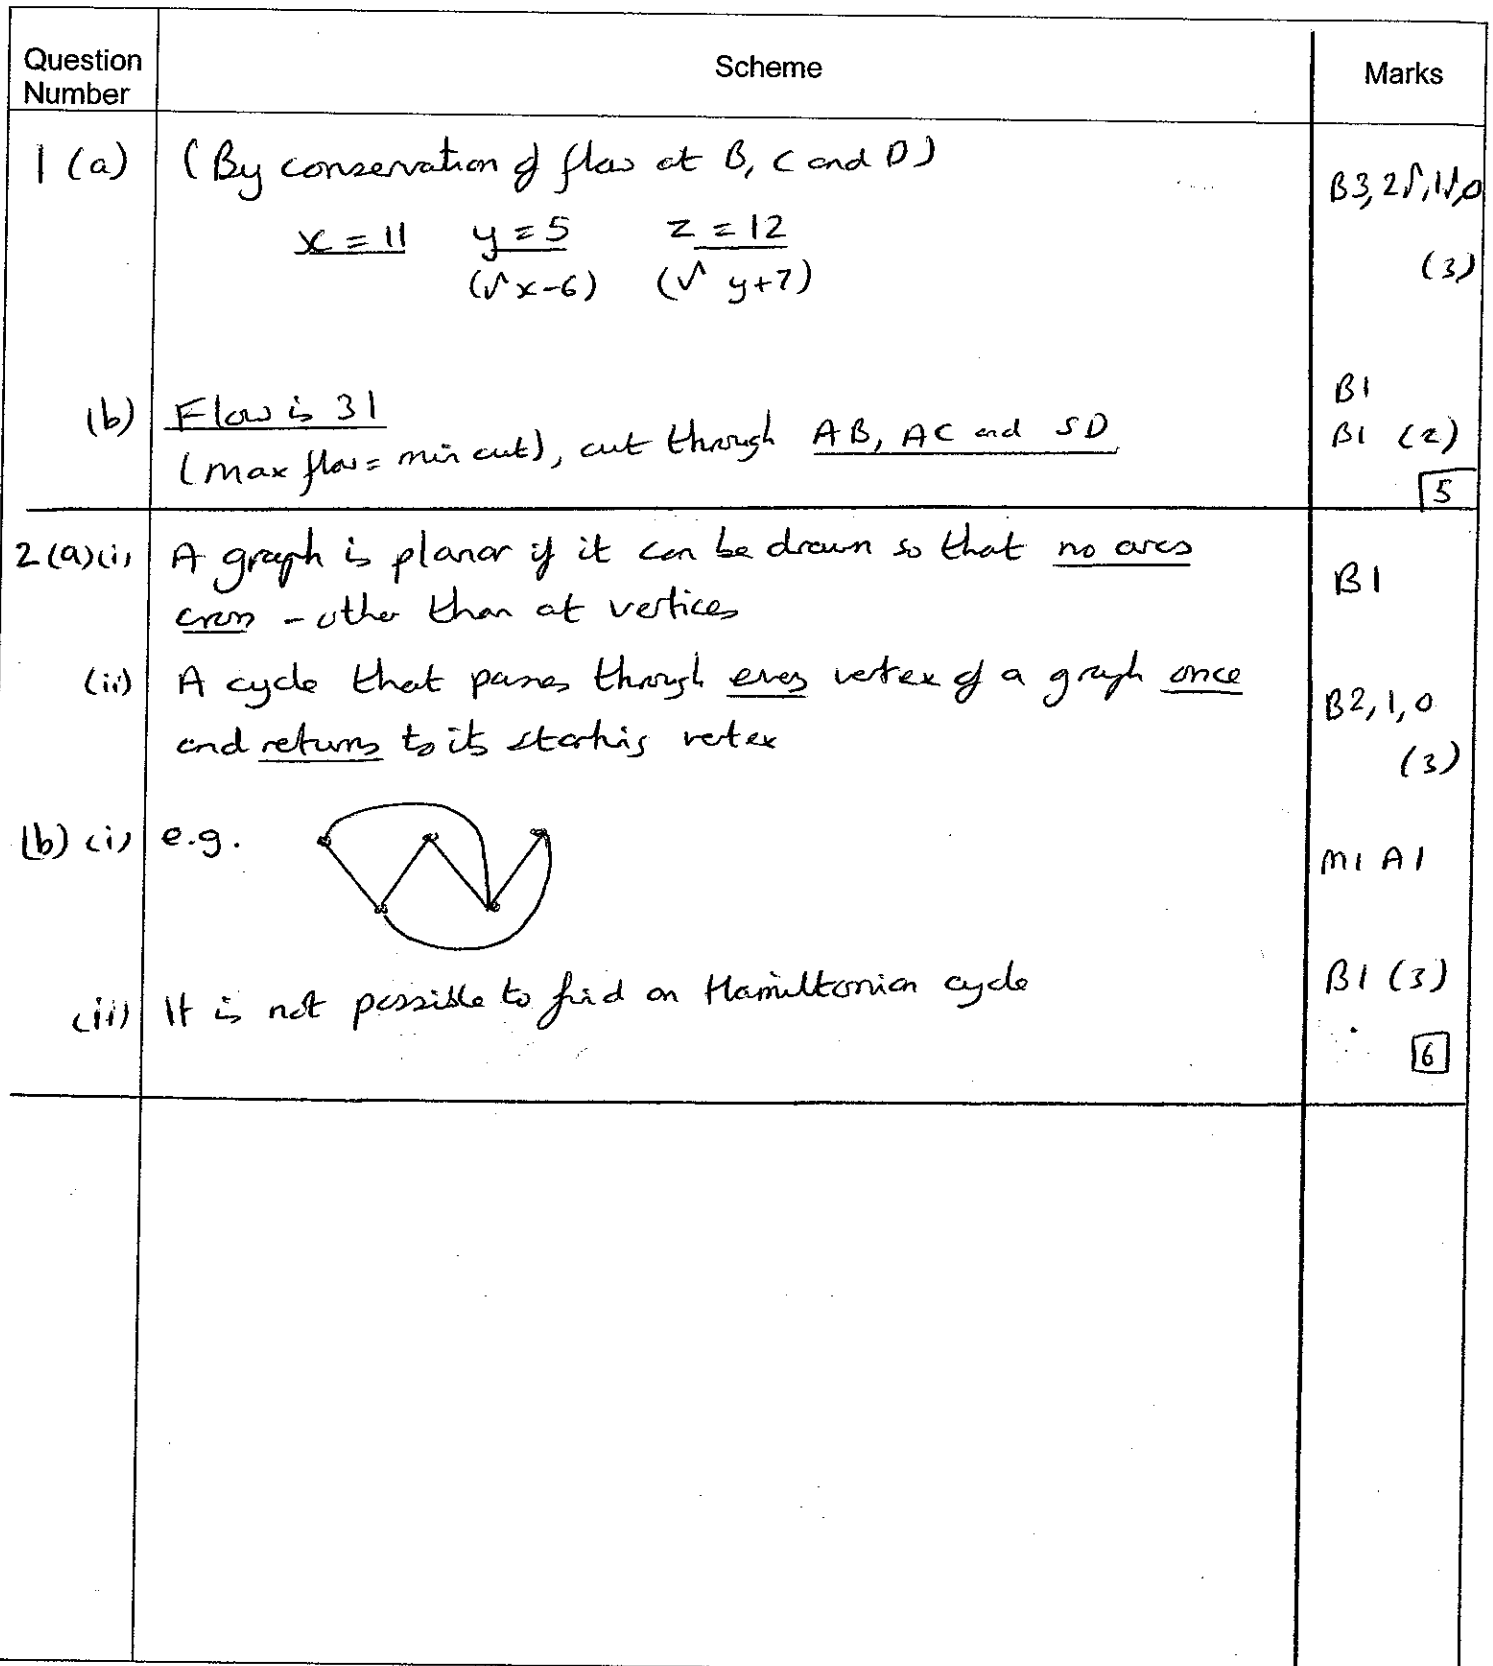 Question Number Scheme Marks
1 (a) (By conservation of flow at B, C and D) B3, 2√, 1√, 0
x = 11 y = 5 z = 12
(√ x-6) (√ y+7) (3)
(b) Flow is 31 B1
(max flow = min cut), cut through AB, AC and SD B1 (2)
5
2(a)(i) A graph is planar if it can be drawn so that no arcs B1
cross - other than at vertices
(ii) A cycle that passes through every vertex of a graph once B2, 1, 0
and returns to its starting vertex (3)
(b) (i) e.g. M1 A1
(ii) It is not possible to find an Hamiltonian cycle B1 (3)
6